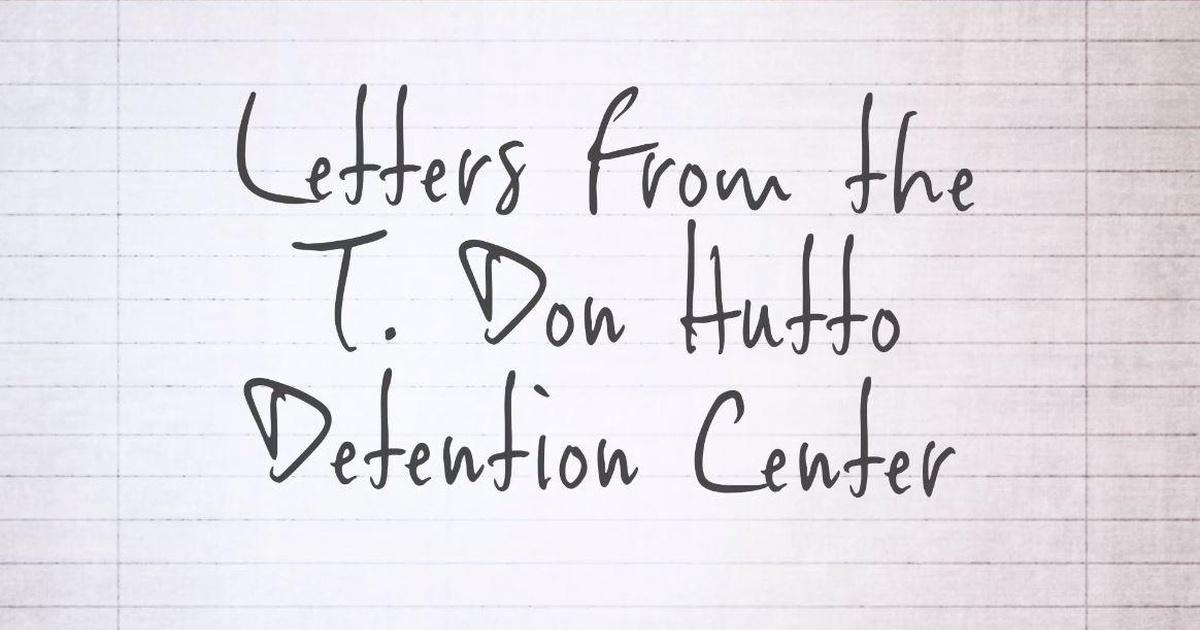 Letters From the
T. Don Hutto
Detention Center